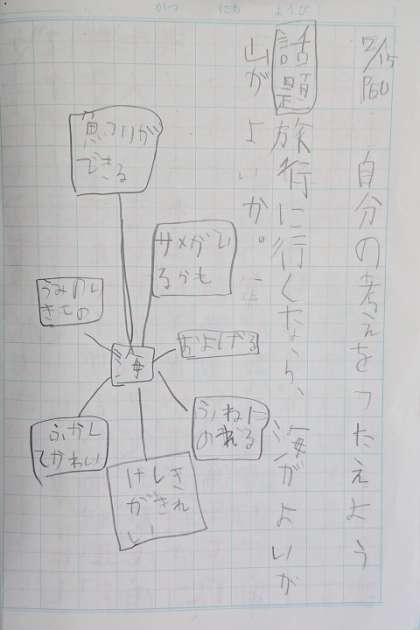 7/15
P60
自分の考えをつたえよう
話題 旅行に行くなら、海がよいか
山がよいか。
魚つりが
できる
サメがい
るかも
うみのい
きもの
およげる
海
ふねに
のれる
ふかし
てかわい
けしき
がきれ
い